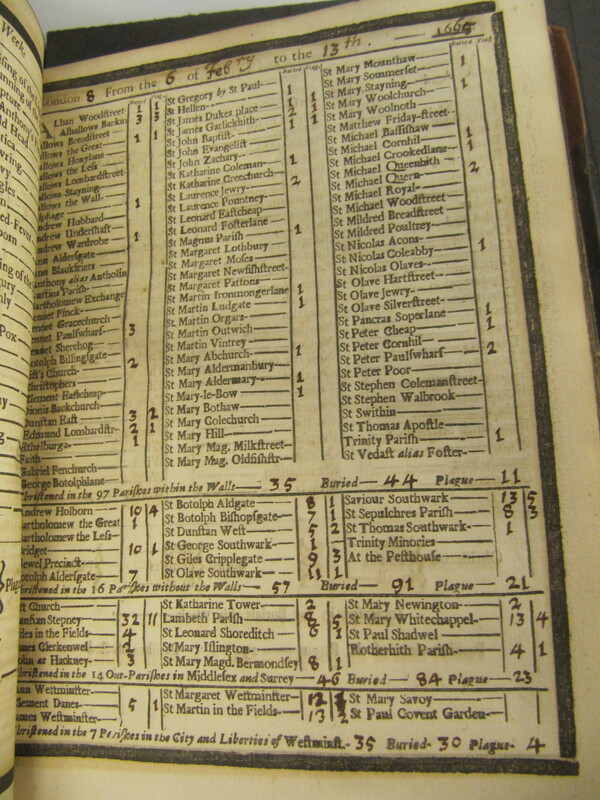 London 8 From the 6 of Febry to the 13th. 1665
Buried Plag.
Alban Woodſtreet 1 1
Alhallows Barkin 3 3
allows Breadſtreet 1 1
allows the Great
allows Honylane
allows the Leſs
allows Lombardſtreet
allows Stayning
allows the Wall 1
lphage
ndrew Hubbard
ndrew Underſhaft
ndrew Wardrobe 1
nn Alderſgate
nn Blackfriers
nthony alias Antholin
uſtins Pariſh
artholomew Exchange
ennet Finck
ennet Gracechurch
ennet Paulſwharf 3
ennet Sherehog
otolph Billingſgate 2
iſt's Church
hriſtophers
lement Eaſtcheap
ionis Backchurch
Dunſtan Eaſt 3 2
Edmund Lombardſtr- 2 1
Ethelburga 1
Faith
Gabriel Fenchurch
George Botolphlane
Buried Plag.
St Gregory by St Paul 1
St Hellen 1 1
St James Dukes place 2 1
St James Garlickhith 1 1
St John Baptiſt
St John Evangeliſt
St John Zachary
St Katharine Coleman 1
St Katharine Creechurch 2
St Laurence Jewry
St Laurence Pountney
St Leonard Eaſtcheap
St Leonard Foſterlane
St Magnus Pariſh 1
St Margaret Lothbury
St Margaret Moſes
St Margaret Newfiſhſtreet
St Margaret Pattons
St Martin Ironmongerlane 1
St Martin Ludgate 1
St Martin Orgars
St Martin Outwich
St Martin Vintrey
St Mary Abchurch 1
St Mary Aldermanbury
St Mary Aldermary 1
St Mary-le-Bow 1
St Mary Bothaw
St Mary Colechurch
St Mary Hill
St Mary Mag. Milkſtreet
St Mary Mag. Oldfiſhſtr
Buried Plag.
St Mary Mounthaw 1
St Mary Sommerſet
St Mary Stayning 1
St Mary Woolchurch
St Mary Woolnoth
St Matthew Friday-ſtreet
St Michael Baſſiſhaw
St Michael Cornhil 1
St Michael Crookedlane
St Michael Queenhith 2
St Michael Quern
St Michael Royal
St Michael Woodſtreet
St Mildred Breadſtreet
St Mildred Poultney
St Nicolas Acons
St Nicolas Coleabby 1
St Nicolas Olaves
St Olave Hartſtreet
St Olave Jewry
St Olave Silverſtreet
St Pancras Soperlane 1
St Peter Cheap 1
St Peter Cornhil
St Peter Paulſwharf 2
St Peter Poor
St Stephen Colemanſtreet
St Stephen Walbrook
St Swithin
St Thomas Apoſtle
Trinity Pariſh 1
St Vedaſt alias Foſter
hriſtened in the 97 Pariſhes within the Walls 35 Buried 44 Plague 11
ndrew Holborn 10 4
artholomew the Great 1
artholomew the Leſs
ridget 10 1
ewel Precinct
otolph Alderſgate 7
St Botolph Aldgate 8 1
St Botolph Biſhopſgate 7 1
St Dunſtan Weſt 5 2
St George Southwark 1
St Giles Cripplegate 9 3
St Olave Southwark 11 1
Saviour Southwark 13 5
St Sepulchres Pariſh 8 3
St Thomas Southwark 1
Trinity Minories
At the Peſthouſe
hriſtened in the 16 Pariſhes without the Walls 57 Buried 91 Plague 21
ſt Church
unſtan Stepney 32 11
iles in the Fields 4
ames Clerkenwel 2
ohn at Hackney 3
St Katharine Tower 2
Lambeth Pariſh 8 5
St Leonard Shoreditch 6 1
St Mary Iſlington
St Mary Magd. Bermondſey 8 1
St Mary Newington 2
St Mary Whitechappel 13 4
St Paul Shadwel
Rotherhith Pariſh 4 1
hriſtened in the 14 Out-Pariſhes in Middleſex and Surrey 46 Buried 84 Plague 23
nn Weſtminſter
lement Danes 5 1
ames Weſtminſter
St Margaret Weſtminſter 12 1
St Martin in the Fields 13 2
St Mary Savoy
St Paul Covent Garden
hriſtened in the 7 Pariſhes in the City and Liberties of Weſtminſt. 35 Buried 30 Plague 4